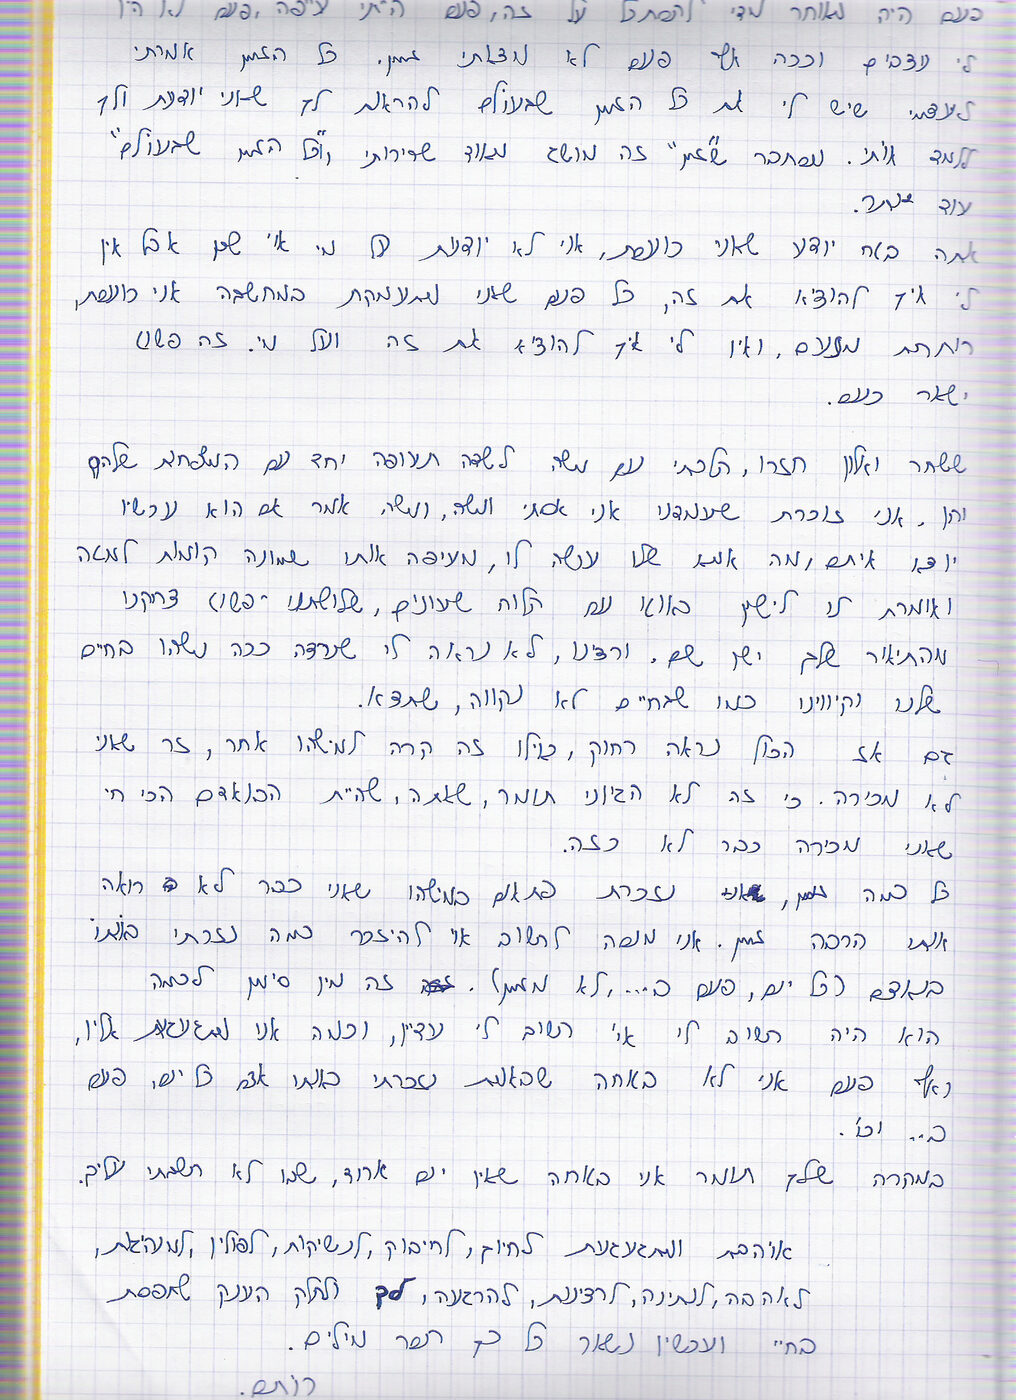 פעם היה מאוחר מידי להסתכל על זה, פעם הייתי עייפה, פעם לא היו
לי עצבים וככה אף פעם לא מצאתי זמן. כל הזמן אמרתי
לעצמי שיש לי את כל הזמן שבעולם להראות לך שאני יודעת ולך
ללמד אותי. מסתבר ש"זמן" זה מושג מאוד שרירותי ו"כל הזמן שבעולם"
עוד יותר.
אתה בטח יודע שאני כועסת, אני לא יודעת על מי או שכן אבל אין
לי איך להוציא את זה, כל פעם שאני מתעמקת במחשבה אני כועסת,
רותחת מזעם, ואין לי איך להוציא את זה ועל מי. זה פשוט
ישאר כעס.
ששחר ואלון חזרו, הלכתי עם משה לשדה תעופה יחד עם המשפחות שלהם
וחן. אני זוכרת שעמדנו אני אסתי ומשה, ומשה אמר אם הוא עכשיו
יוצא איתם, מה אמא שלו עושה לו, מעיפה אותו שמונה קומות למטה
ואומרת לו לישון באוטו עם הלוח שעונים, שלושתנו פשוט צחקנו
מהתיאור שלך ישן שם. ורצינו, לא נראה לי שנרצה ככה משהו בחיים
שלנו וקיווינו כמו שבחיים לא נקווה, שתצא.
גם אז הכול נראה רחוק, כאילו זה קרה למישהו אחר, זר שאני
לא מכירה. כי זה לא הגיוני תומר, שאתה, שהיית הבואדם הכי חי
שאני מכירה כבר לא כזה.
כל כמה זמן, נזכרת פתאום במישהו שאני כבר לא רואה
אותו הרבה זמן. אני מנסה לחשוב או להיזכר כמה נזכרתי באותו
בנאדם (כל יום, פעם ב..., לא מזמן). זה מין סימן לכמה
הוא היה חשוב לי או חשוב לי עדיין, וכמה אני מתגעגעת אליו,
ואף פעם אני לא בטוחה שבאמת נזכרתי באותו אדם כל יום, פעם
ב... וכו'.
במקרה שלך תומר אני בטוחה שאין יום אחד, שבו לא חשבתי עליך.
אוהבת ומתגעגעת לחיוך, לחיבוק, לנשיקות, לפולין, למנהיגות,
לאהבה, לנתינה, לרצינות, להרגעה, לך ולחלק הענק שתפסת
בחיי ועכשיו נשאר כל כך חסר מילים.
רותם.